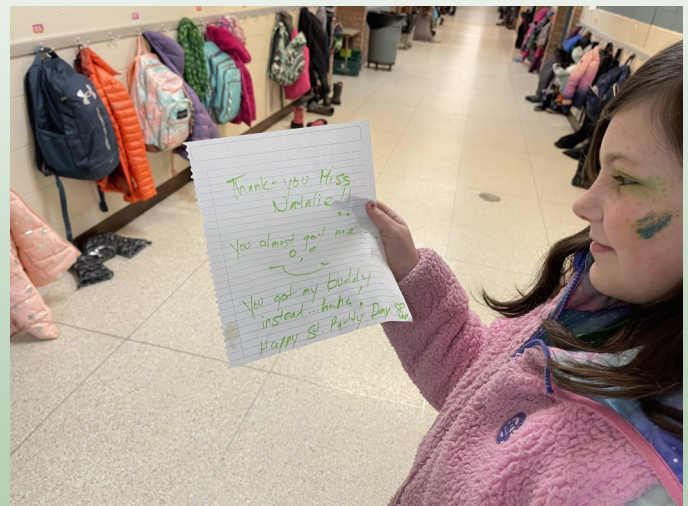 Thank-you Miss
Natalie!!
You almost got me...
You got my buddy
instead...haha!
Happy St. Paddy Day